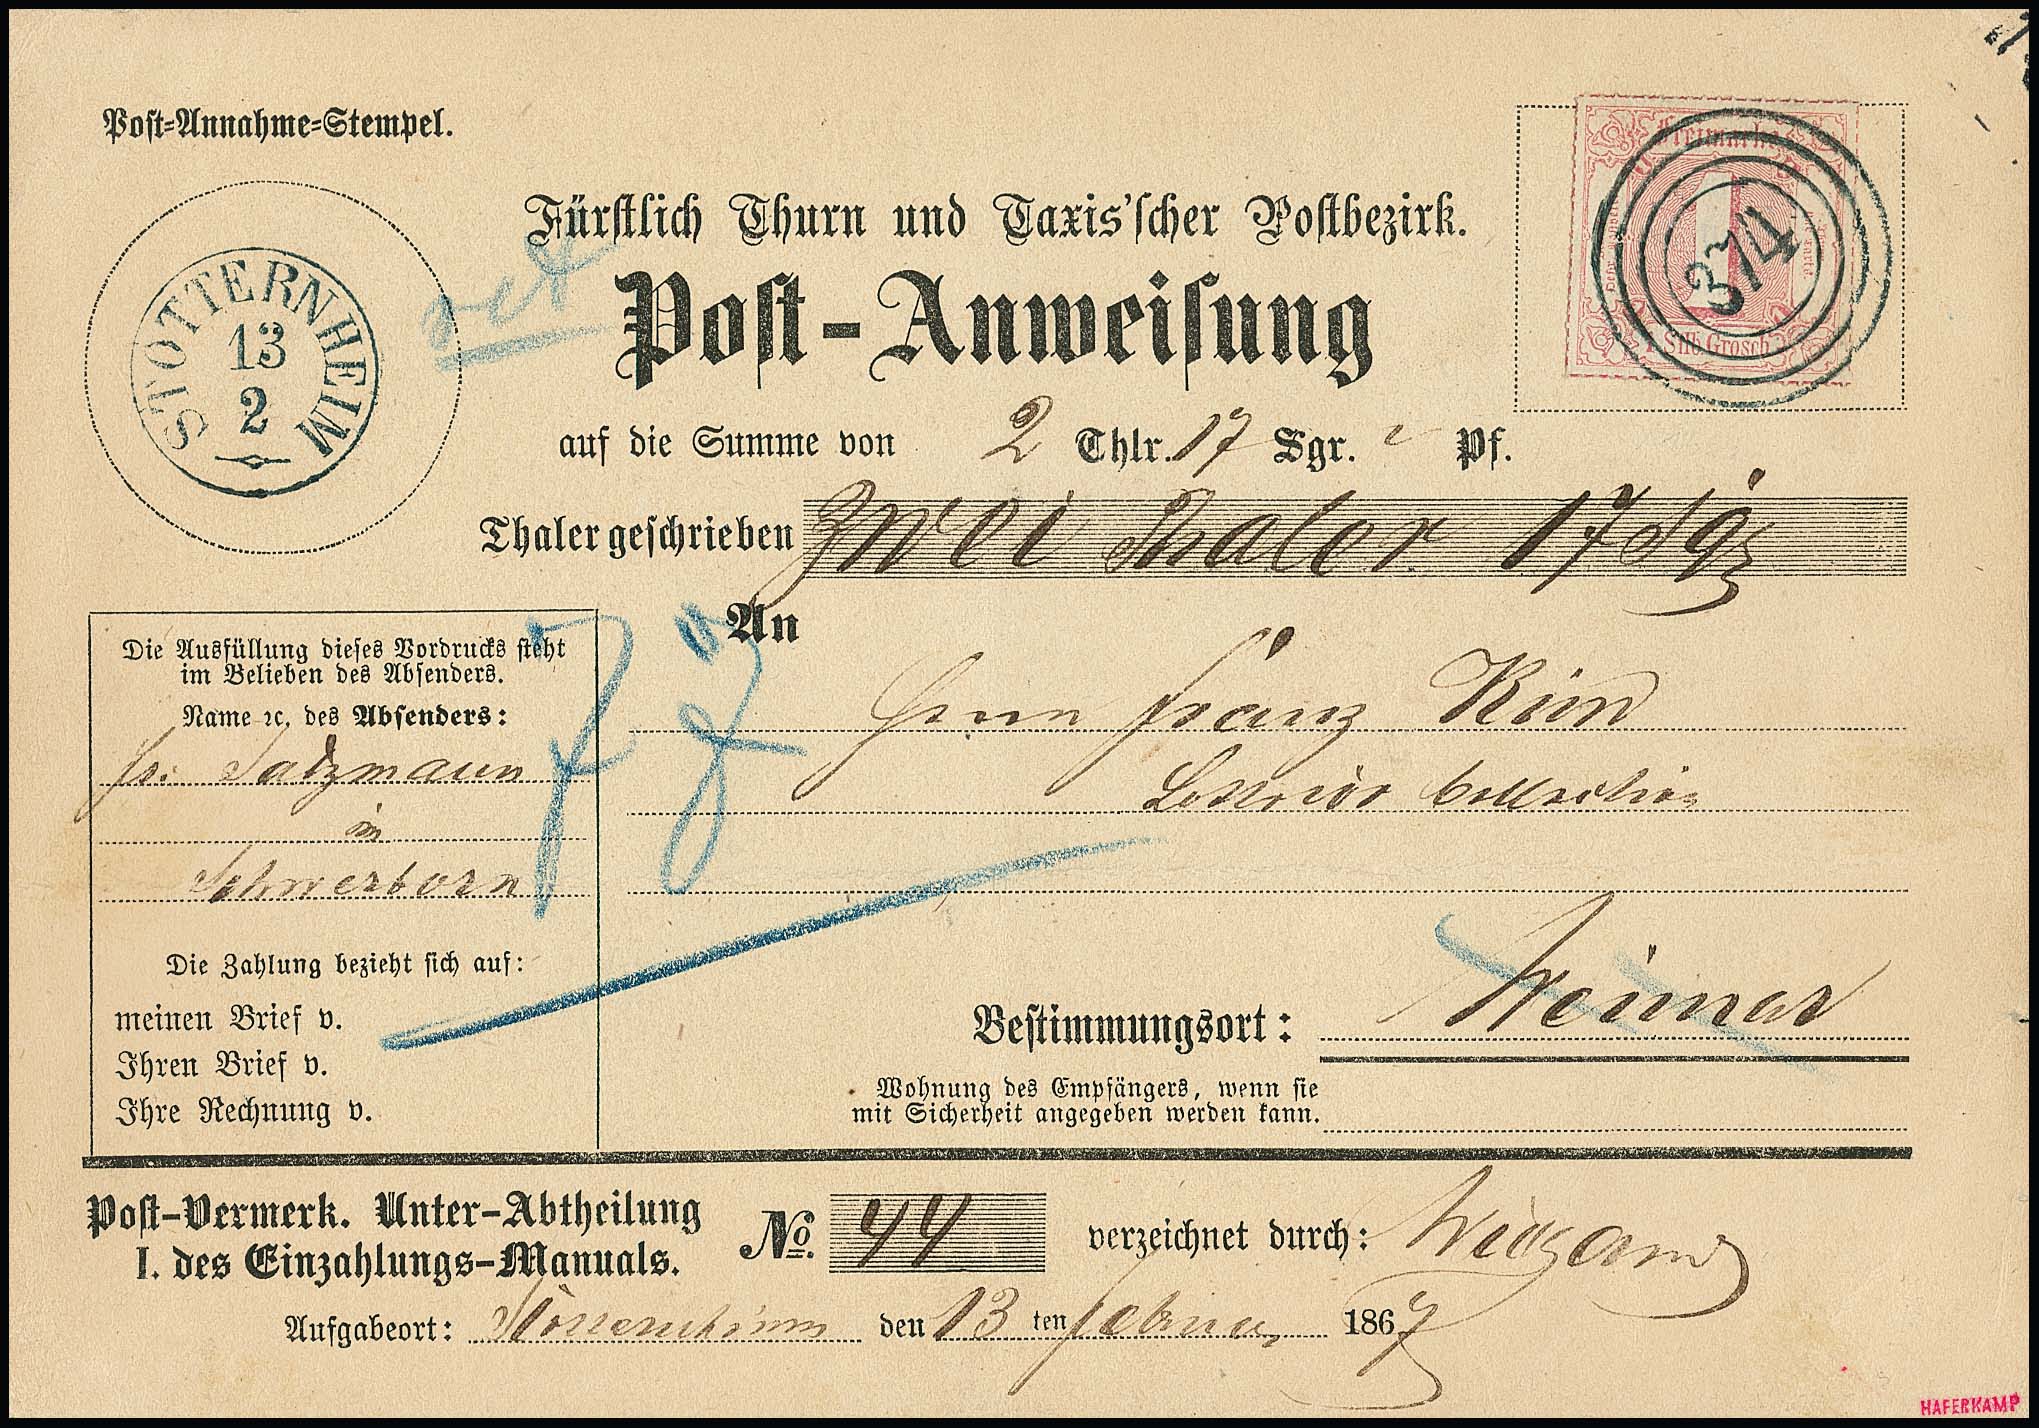 Post-Annahme-Stempel.
STOTTERNHEIM
13
2
Freimarke
1 Silb. Grosch.
374
Fürstlich Thurn und Taxis'scher Postbezirk.
Post-Anweisung
auf die Summe von 2 Thlr. 17 Sgr. Pf.
Thaler geschrieben Zwei Thaler 17 Sgr
An
Herrn Franz
Die Ausfüllung dieses Vordrucks steht
im Belieben des Absenders.
Name ꝛc. des Absenders:
Fr. Salzmann
in
Schwerborn
Die Zahlung bezieht sich auf:
meinen Brief v.
Ihren Brief v.
Ihre Rechnung v.
Bestimmungsort: Weimar
Wohnung des Empfängers, wenn sie
mit Sicherheit angegeben werden kann.
Post-Vermerk. Unter-Abtheilung
I. des Einzahlungs-Manuals.
No. 44 verzeichnet durch: Weigand
Aufgabeort: Stotternheim den 13 ten Februar 1867
HAFERKAMP